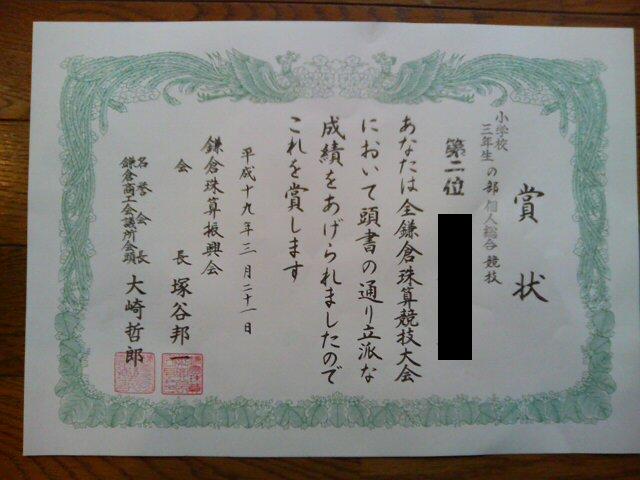 賞状
小学校三年生の部個人総合競技
第二位
あなたは全鎌倉珠算競技大会
において頭書の通り立派な
成績をあげられましたので
これを賞します
平成十九年三月二十一日
鎌倉珠算振興会
会長 塚谷邦一
名誉会長
鎌倉商工会議所会頭
大崎哲郎